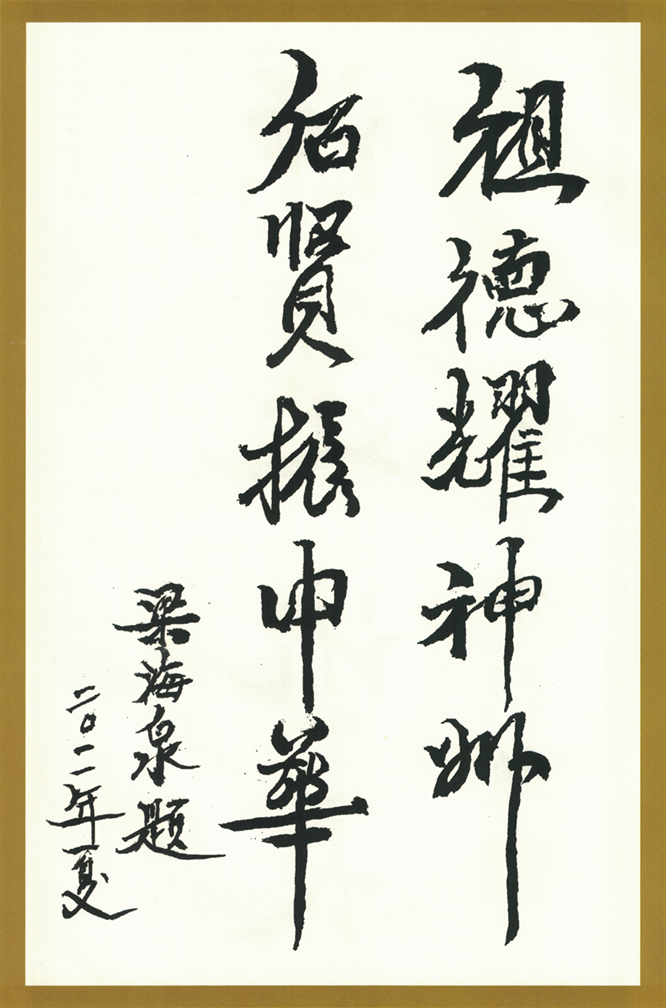 祖德耀神州
后賢振中華
梁海泉題
二〇一一年夏